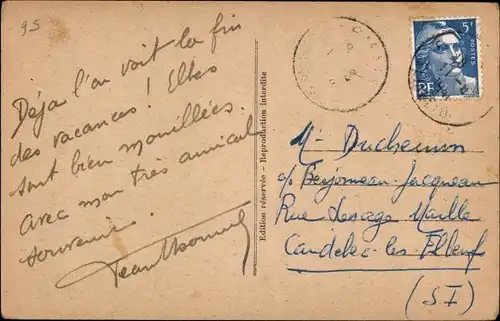 95
Déjà l'on voit la fin
des vacances ! Elles
sont bien mouillées.
Avec mon très amical
souvenir.
Edition réservée - Reproduction interdite
5F
POSTES
RF
Mr Duchemin
c/o Berjonneau-Jacqueau
Rue Lesage Maille
Caudebec-les-Elbeuf
(S I)